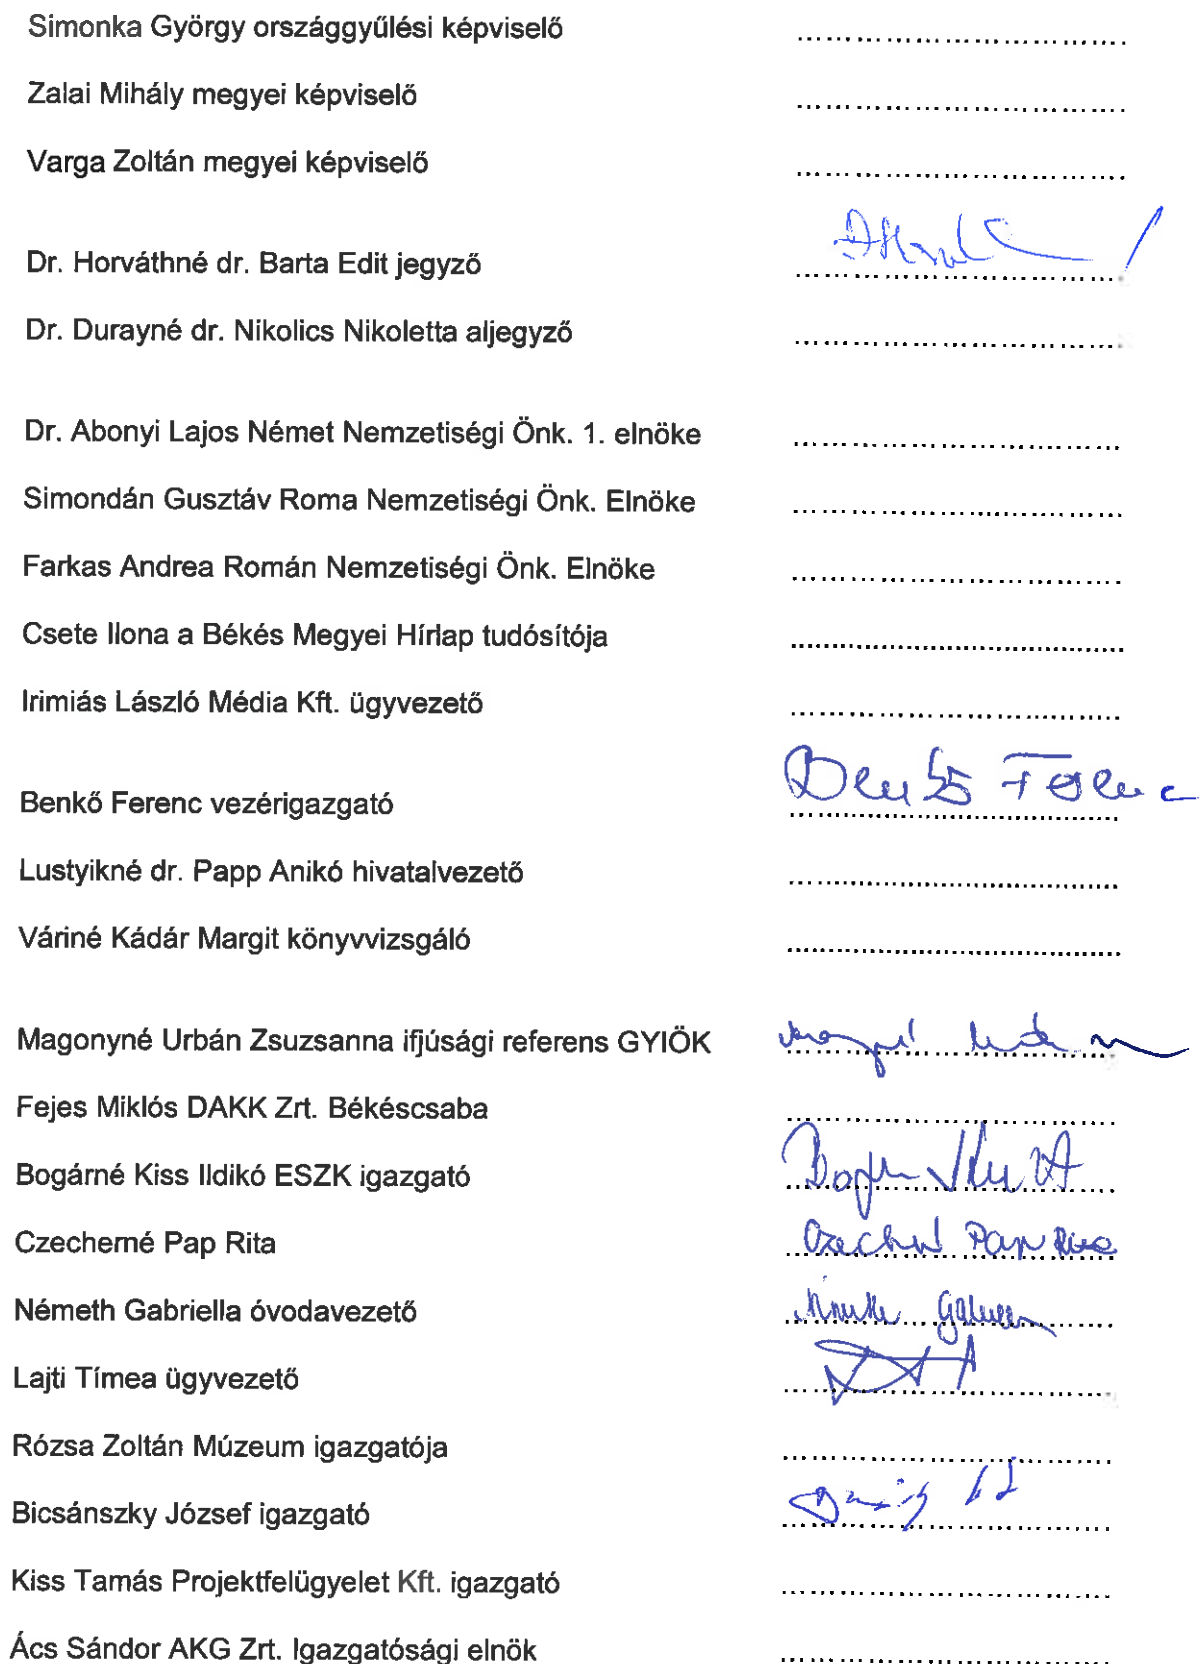 Simonka György országgyűlési képviselő ....................................
Zalai Mihály megyei képviselő ....................................
Varga Zoltán megyei képviselő ....................................
Dr. Horváthné dr. Barta Edit jegyző ....................................
Dr. Durayné dr. Nikolics Nikoletta aljegyző ....................................
Dr. Abonyi Lajos Német Nemzetiségi Önk. 1. elnöke ....................................
Simondán Gusztáv Roma Nemzetiségi Önk. Elnöke ....................................
Farkas Andrea Román Nemzetiségi Önk. Elnöke ....................................
Csete Ilona a Békés Megyei Hírlap tudósítója ....................................
Irimiás László Média Kft. ügyvezető ....................................
Benkő Ferenc vezérigazgató Benkő Ferenc
Lustyikné dr. Papp Anikó hivatalvezető ....................................
Váriné Kádár Margit könyvvizsgáló ....................................
Magonyné Urbán Zsuzsanna ifjúsági referens GYIÖK ....................................
Fejes Miklós DAKK Zrt. Békéscsaba ....................................
Bogárné Kiss Ildikó ESZK igazgató ....................................
Czecherné Pap Rita Czecherné Pap Rita
Németh Gabriella óvodavezető Németh Gabriella
Lajti Tímea ügyvezető ....................................
Rózsa Zoltán Múzeum igazgatója ....................................
Bicsánszky József igazgató ....................................
Kiss Tamás Projektfelügyelet Kft. igazgató ....................................
Ács Sándor AKG Zrt. Igazgatósági elnök ....................................